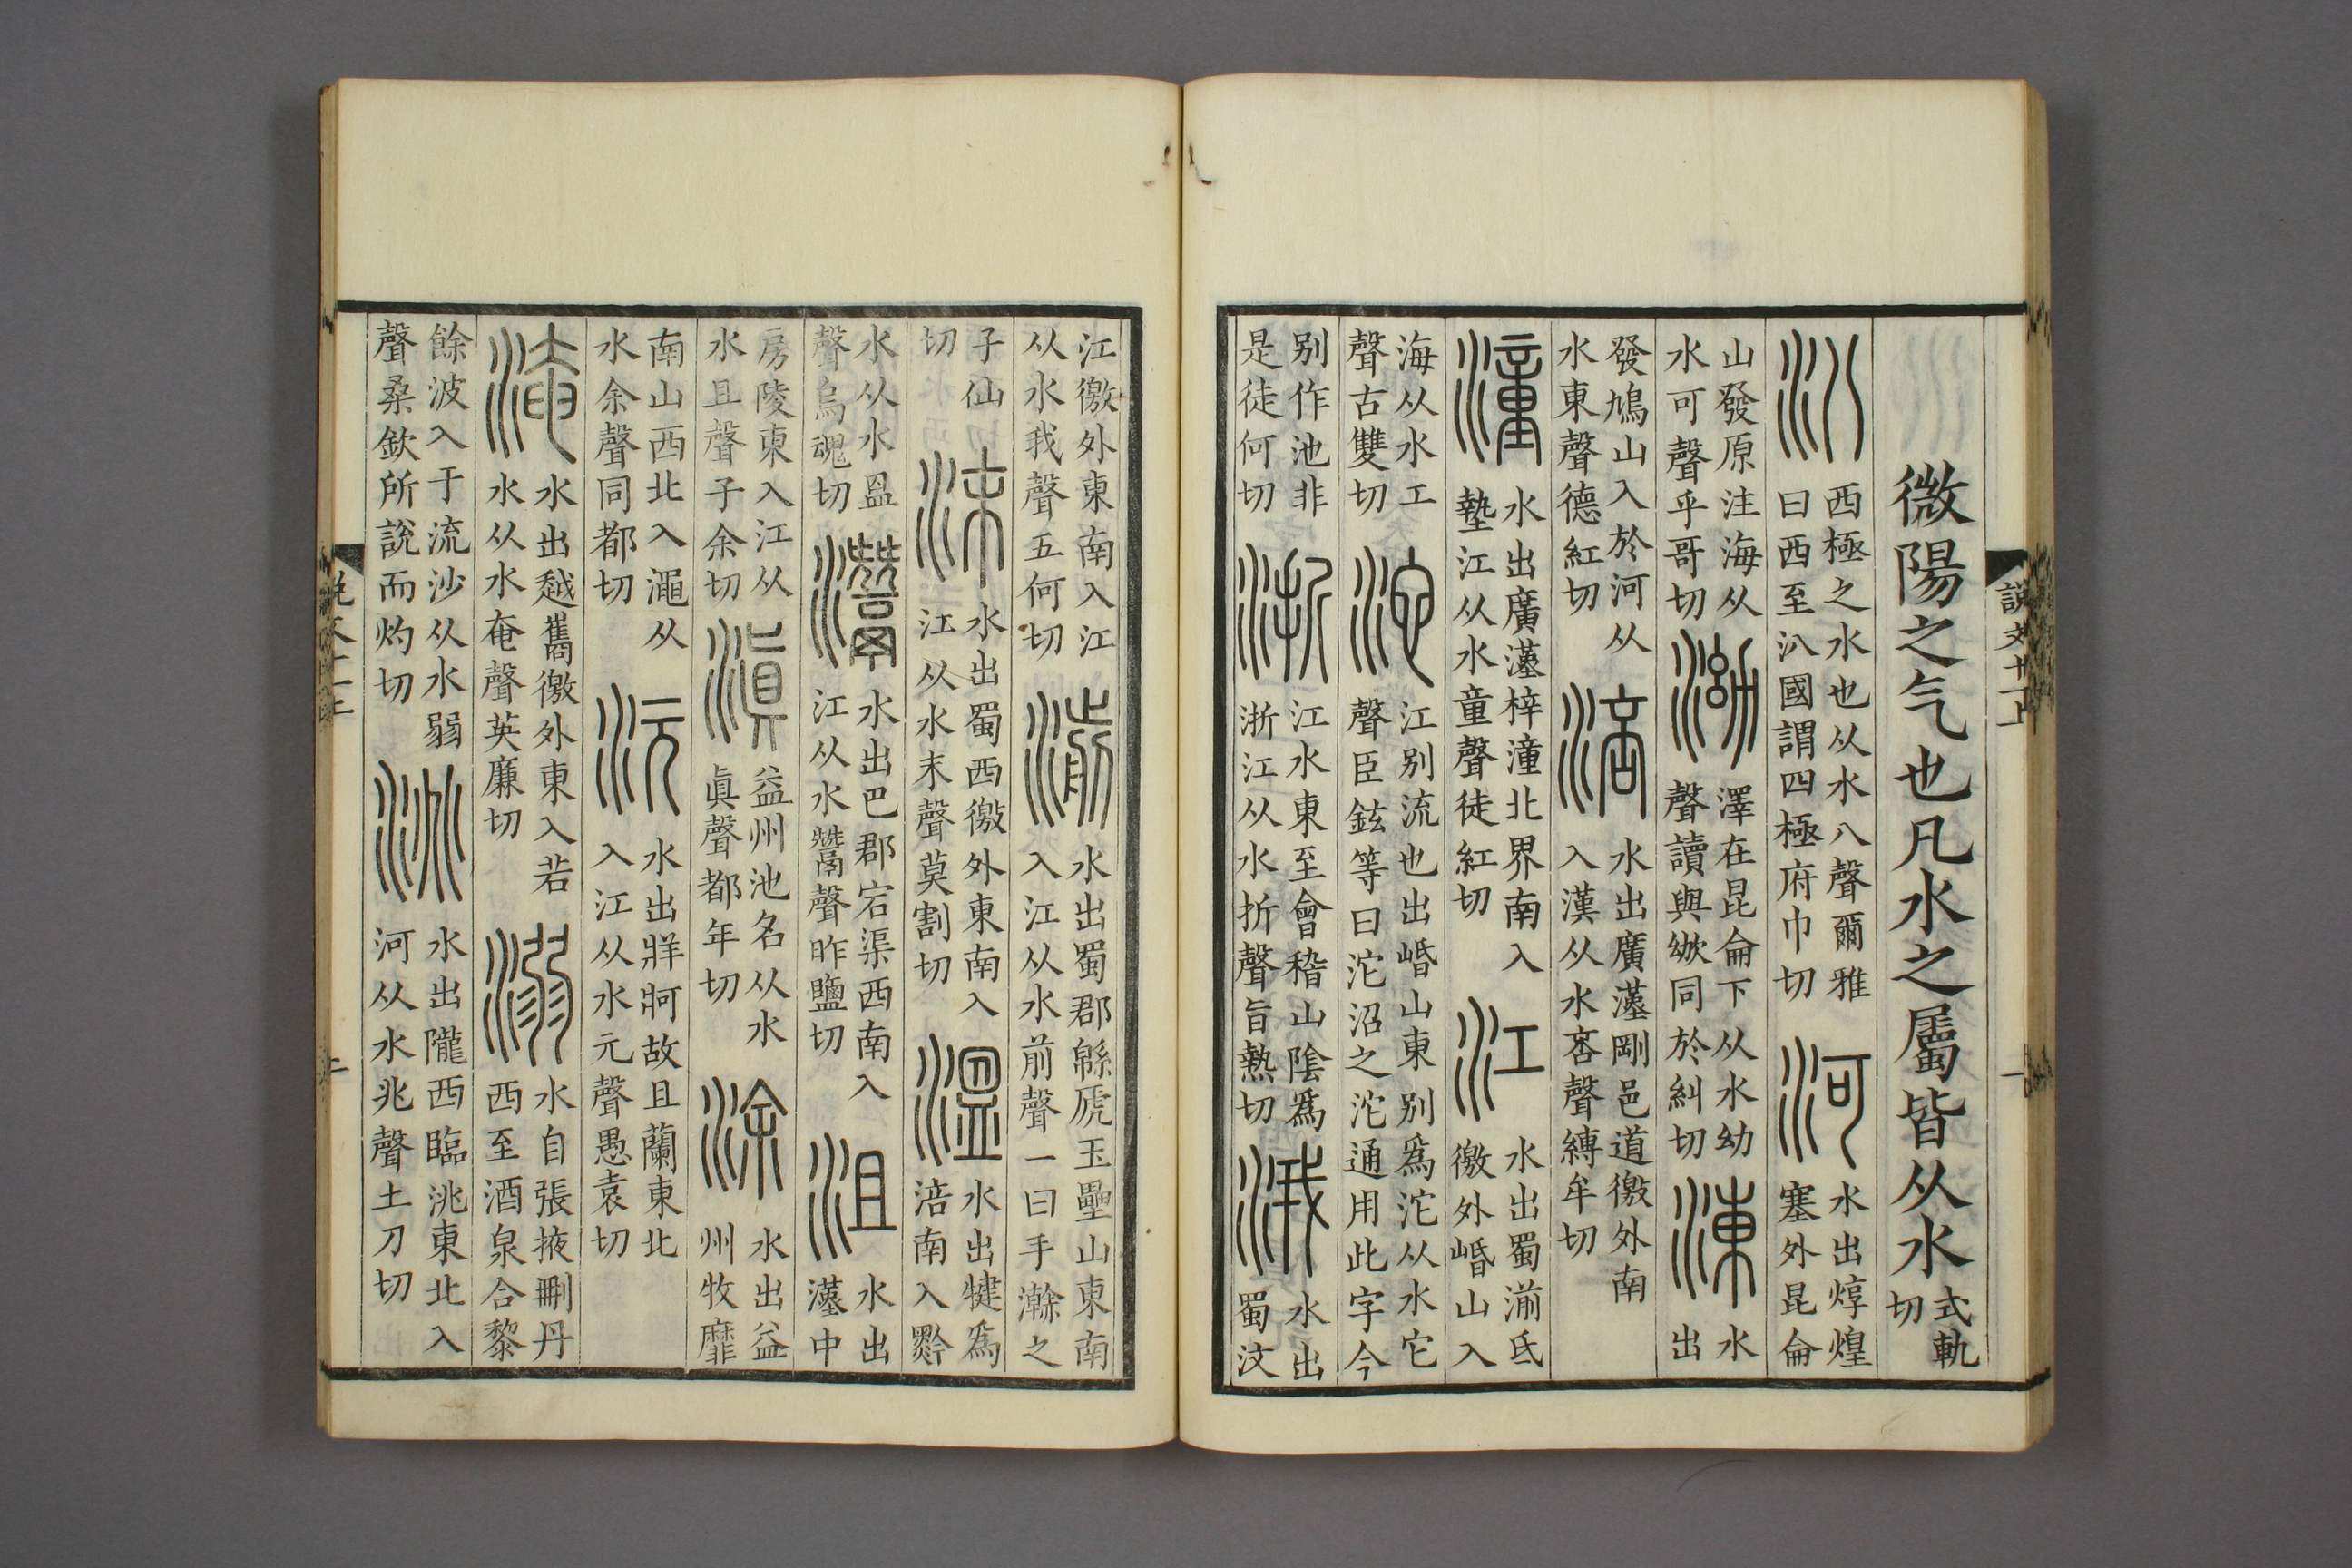 説文十一上
一
微陽之气也凡水之屬皆从水式軌切
汃西極之水也从水八聲爾雅曰西至汃國謂四極府巾切河水出焞煌塞外昆侖
山發原注海从水可聲乎哥切泑澤在昆侖下从水幼聲讀與同於糾切涷水出
發鳩山入於河从水東聲德紅切涪水出廣漢剛邑道徼外南入漢从水咅聲縛牟切
潼水出廣漢梓潼北界南入墊江从水童聲徒紅切江水出蜀湔氐徼外崏山入
海从水工聲古雙切沱江別流也出崏山東別爲沱从水它聲臣鉉等曰沱沼之沱通用此字今
別作池非是徒何切浙江水東至會稽山陰爲浙江从水折聲旨熱切涐水出蜀汶
江徼外東南入江从水我聲五何切湔水出蜀郡緜虒玉壘山東南入江从水前聲一曰手瀚之
子仙切沬水出蜀西徼外東南入江从水末聲莫割切溫水出犍爲涪南入黔
水从水𥁕聲烏魂切灊水出巴郡宕渠西南入江从水鬵聲昨鹽切沮水出漢中
房陵東入江从水且聲子余切滇益州池名从水眞聲都年切涂水出益州牧靡
南山西北入澠从水余聲同都切沅水出牂牁故且蘭東北入江从水元聲愚袁切
淹水出越嶲徼外東入若水从水奄聲英廉切溺水自張掖刪丹西至酒泉合黎
餘波入于流沙从水弱聲桑欽所說而灼切洮水出隴西臨洮東北入河从水兆聲土刀切